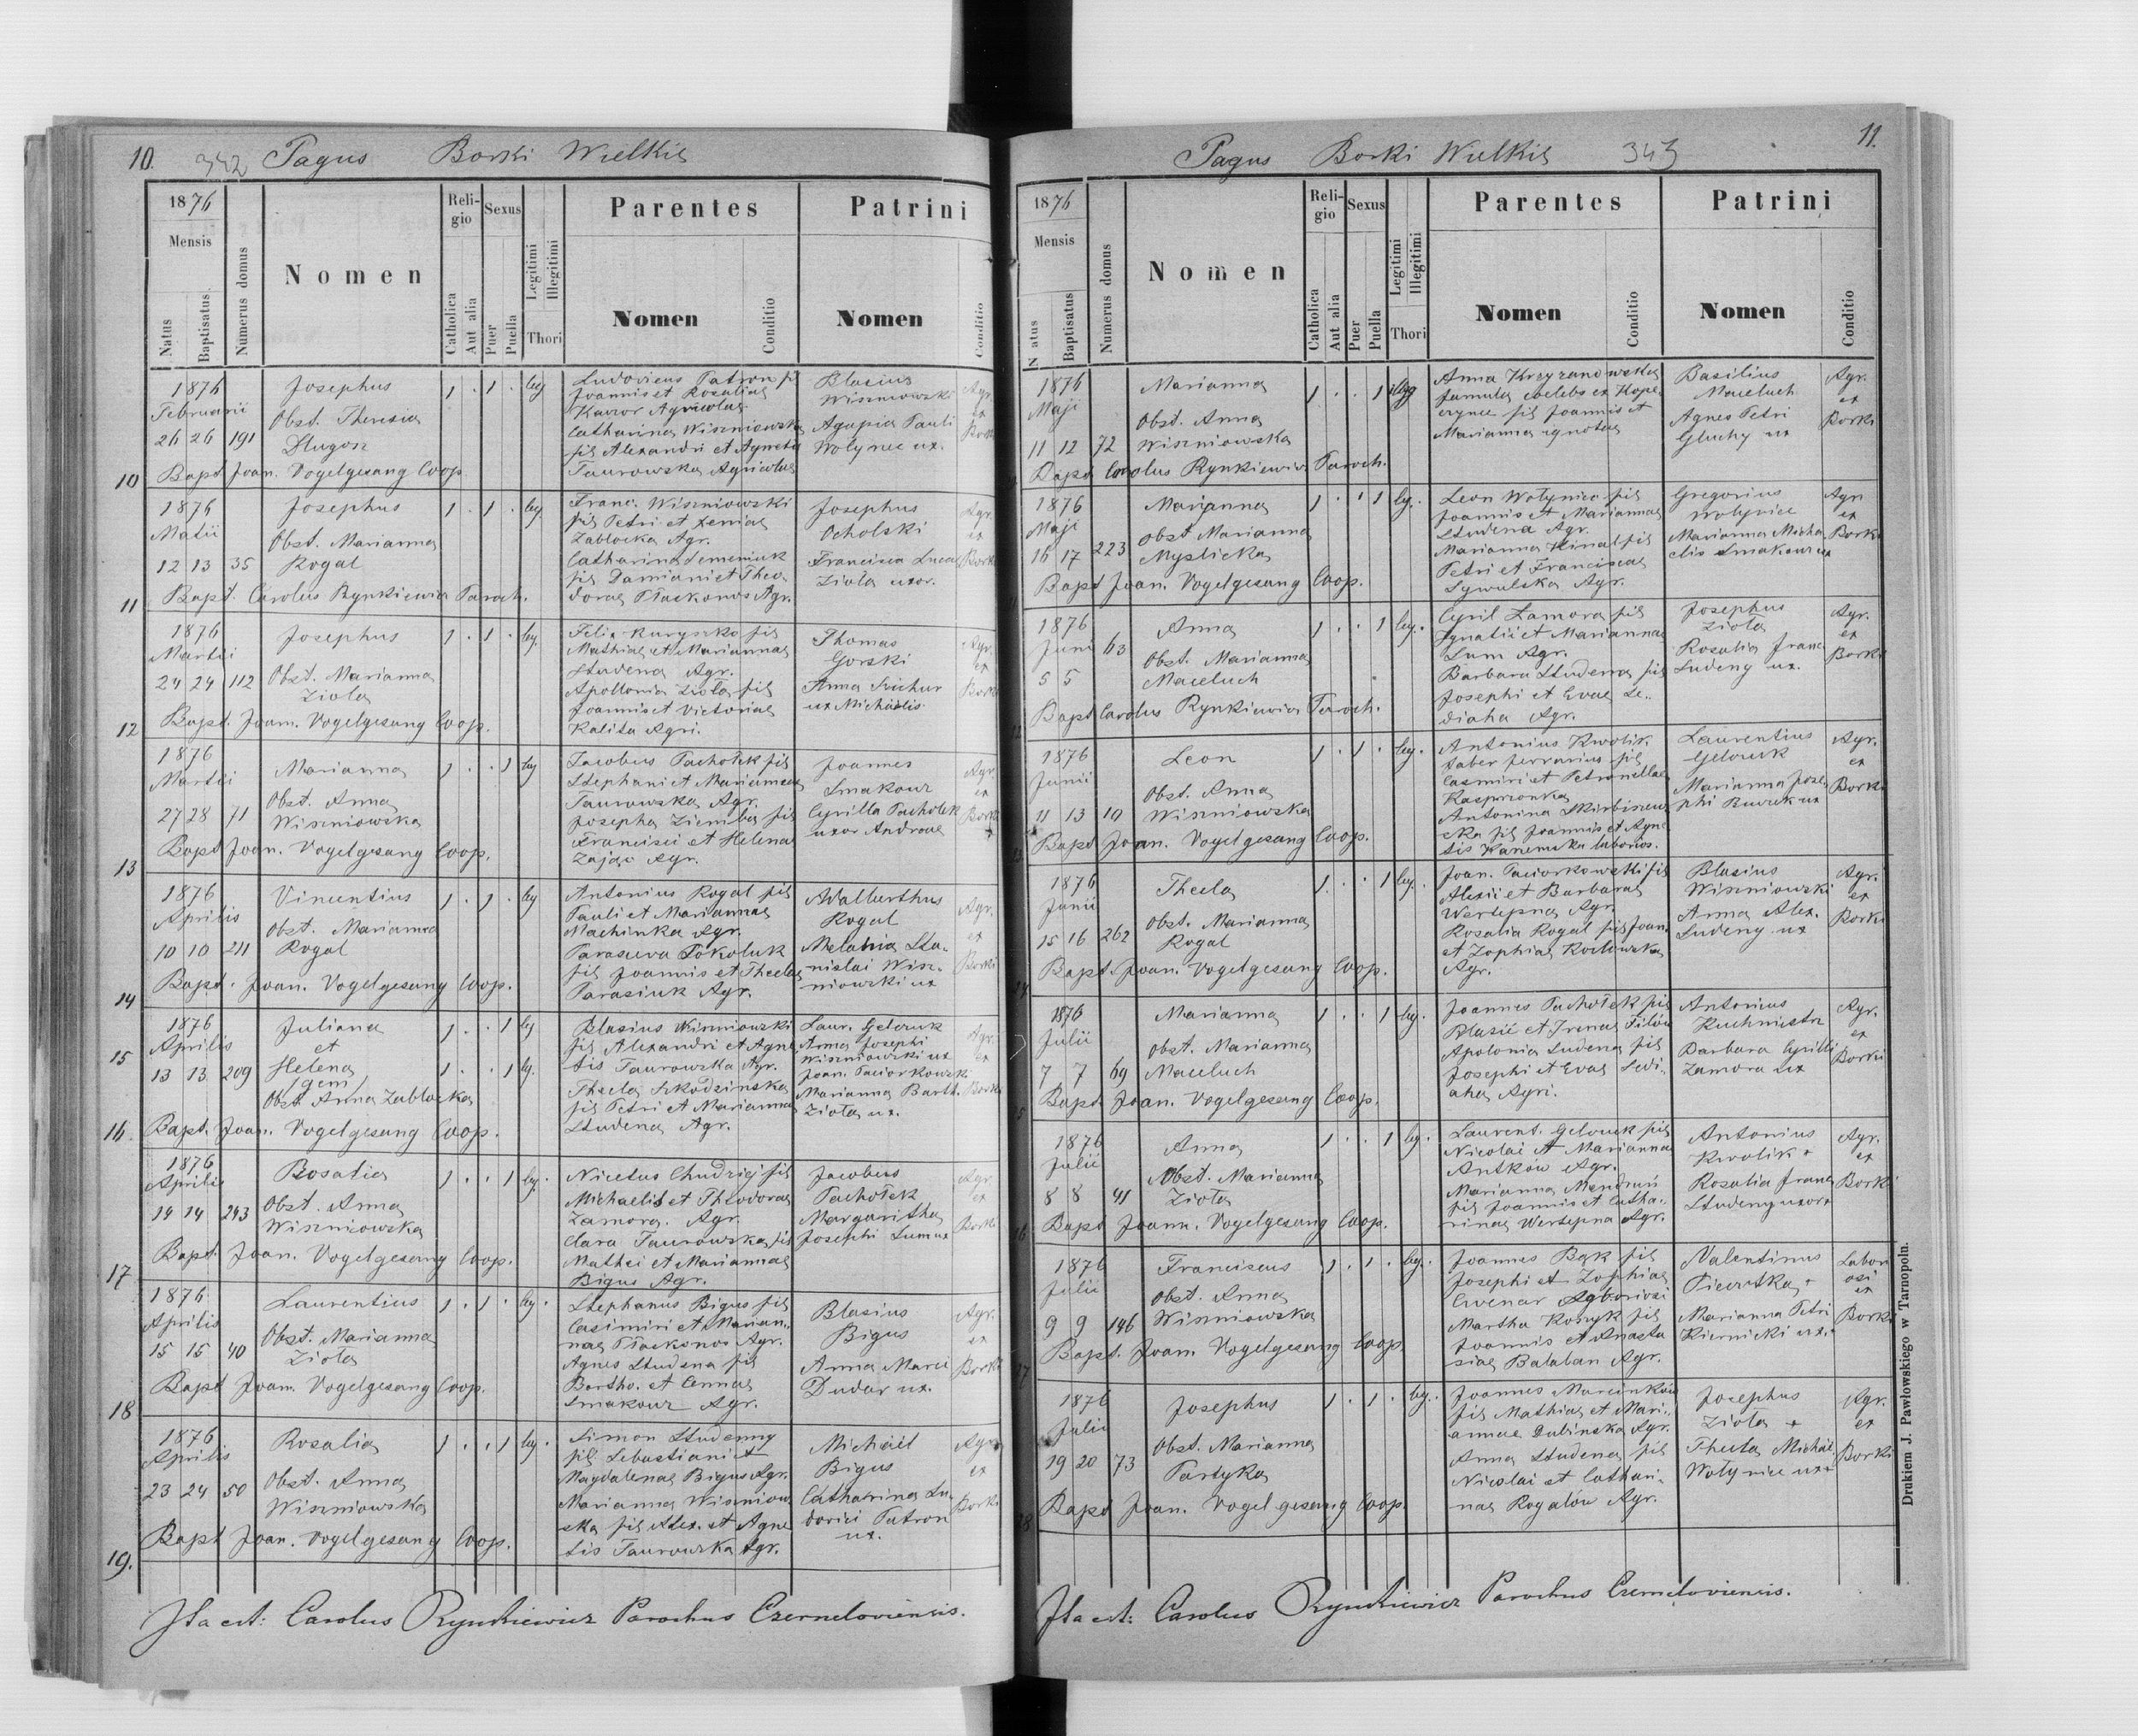 10.
342
Pagus Borki Wielkie
1876
Mensis
Natus
Baptisatus.
Numerus domus
Nomen
Religio
Catholica
Aut alia
Sexus
Puer
Puella
Legitimi
Illegitimi
Thori
Parentes
Nomen
Conditio
Patrini
Nomen
Conditio
1876
Februarii
26 26 191
Josephus
Obst. Theresia
Dlugosz
1 . 1 . leg
Ludovicus Patron fil
Joannis et Rosaliae
Agricolae
Catharina Wiszniowska
fil Alexandri et Agnetis
Taurowska Agricolae
Blasius
Wiszniowski
Agapia Pauli
Wolynec ux.
Agr.
ex
Borki
Bapt Joan. Vogelgesang Coop.
10
1876
Martii
12 13 35
Josephus
Obst. Marianna
Rogal
1 . 1 . leg.
Franc. Wiszniowski
fil Petri et Xeniae
Zablocka Agr.
Catharina Semeniuk
fil Damiani et Theo-
dorae Ptaskonos Agr.
Josephus
Ocholski
Francisca Lucae
Ziola uxor.
Agr.
ex
Borki
Bapt. Carolus Rynkiewicz Paroch.
11
1876
Martii
24 24 112
Josephus
Obst. Marianna
Ziola
1 . 1 . leg.
Felix Kuryszko fil
Mathiae et Mariannae
Studena Agr.
Apollonia Ziola fil
Joannis et Victoriae
Kalita Agri.
Thomas
Gorski
Anna
ux Michaelis
Agr.
ex
Borki
Bapt. Joan. Vogelgesang Coop.
12
1876
Martii
27 28 71
Marianna
Obst. Anna
Wiszniowska
1 . . 1 leg
Jacobus Pacholek fil
Stephani et Mariannae
Taurowska Agr.
Josepha Ziemba fil
Francisci et Helenae
Zając Agr.
Joannes
Smakouz
Cyrilla Pacholek
uxor Andreae
Agr.
ex
Borki
Bapt Joan. Vogelgesang Coop.
13
1876
Aprilis
10 10 211
Vincentius
Obst. Marianna
Rogal
1 . 1 . leg
Antonius Rogal fil
Pauli et Mariannae
Machinka Agr.
Parasceva Sokoluk
fil Joannis et Theclae
Parasiuk Agr.
Adalberthus
Rogal
Melania Sta-
nislai Wisz-
niowski ux
Agr.
ex
Borki
Bapt. Joan. Vogelgesang Coop.
14
1876
Aprilis
13 13. 209
Juliana
et
Helena
gem
Obst. Anna Zablocka
1 . . 1 leg
1 . . 1 leg.
Blasius Wiszniowski
fil Alexandri et Agne
tis Taurowska Agr.
Thecla Skodzinska
fil Petri et Mariannae
Studena Agr.
Laur. Gelczuk
Anna Josephi
Wiszniowski ux
Joan. Paciorkowski
Marianna Barth.
Ziola ux.
Agr.
ex
Borki
15
Bapt. Joan. Vogelgesang Coop.
16
1876
Aprilis
14 14 243
Rosalia
Obst. Anna
Wiszniowska
1 . . 1 leg.
Nicetus Chudzij fil
Michaelis et Theodorae
Zamora. Agr.
Clara Taurowska fil
Mathei et Mariannae
Bigus Agr.
Jacobus
Pacholek
Margaritha
Josephi Sum ux
Agr
ex
Borki
Bapt. Joan. Vogelgesang Coop.
17
1876
Aprilis
15 15 40
Laurentius
Obst. Marianna
Ziola
1 . 1 . leg.
Stephanus Bigus fil
Casimiri et Marian-
nae Ptaskonos Agr.
Agnes Studena fil
Bartho. et Annae
Smakouz Agr.
Blasius
Bigus
Anna Marci
Dudar ux.
Agr.
ex
Borki
Bapt Joan. Vogelgesang Coop.
18
1876
Aprilis
23 24 50
Rosalia
Obst. Anna
Wiszniowska
1 . . 1 leg.
Simon Studenny
fil Sebastiani et
Magdalenae Bigus Agr.
Marianna Wiszniow
ska fil Alex. et Agne
tis Taurowska Agr.
Michael
Bigus
Catharina Lu-
dovici Patron
ux.
Agr
ex
Borki
Bapt Joan. Vogelgesang Coop.
19.
Ita est: Carolus Rynkiewicz Parochus Czerneloviensis.
Pagus Borki Wielkie
343
11.
1876
Mensis
Natus
Baptisatus
Numerus domus
Nomen
Religio
Catholica
Aut alia
Sexus
Puer
Puella
Legitimi
Illegitimi
Thori
Parentes
Nomen
Conditio
Patrini
Nomen
Conditio
1876
Maji
11 12 72
Marianna
Obst. Anna
Wiszniowska
1 . . 1 illeg
Anna Krzyzanowska
famula coelebs ex Kope-
czynce fil Joannis et
Marianna ignotae
Basilius
Maceluch
Agnes Petri
Gluchy ux
Agr.
ex
Borki
Bapt Carolus Rynkiewicz Paroch.
1876
Maji
16 17 223
Marianna
Obst Marianna
Myslicka
1 . . 1 leg.
Leon Wolyniec fil
Joannis et Mariannae
Studena Agr.
Marianna Kinal fil
Petri et Franciscae
Sywulska Agr.
Gregorius
Wolyniec
Marianna Micha
elis Smakouz ux
Agr
ex
Borki
Bapt Joan. Vogelgesang Coop.
1876
Juni 63
5 5
Anna
Obst. Marianna
Maceluch
1 . . 1 leg.
Cyril Zamora fil
Ignatii et Mariannae
Sum Agr.
Barbara Studenna fil
Josephi et Evae Le-
diaha Agr.
Josephus
Ziola
Rosalia Franc.
Sudeny ux.
Agr.
ex
Borki
Bapt Carolus Rynkiewicz Paroch.
12
1876
Junii
11 13 10
Leon
Obst. Anna
Wiszniowska
1 . 1 . leg.
Antonius Kwolik
faber ferrarius fil
Casimiri et Petronellae
Kasprzonka
Antonina Skirbiszew
ska fil Joannis et Agne
tis Kanemska laborios.
Laurentius
Gelczuk
Marianna Jose-
phi ux
Agr.
ex
Borki
Bapt Joan. Vogelgesang Coop.
13
1876
Junii
15 16 262
Thecla
Obst. Marianna
Rogal
1. . . 1 leg.
Joan. Paciorkowski fil
Alexii et Barbarae
Wertepna Agr.
Rosalia Rogal fil Joan.
et Zophiae Kozlowska
Agr.
Blasius
Wiszniowski
Anna Alex.
Sudeny ux
Agr.
ex
Borki
Bapt. Joan. Vogelgesang Coop.
14
1876
Julii
7 7 69
Marianna
Obst. Marianna
Maceluch
1 . . 1 leg.
Joannes Pacholek fil
Blasii et Irenae Filów
Apolonia Sudena fil
Josephi et Evae Ledi-
aha Agri.
Antonius
Kuchmistr
Barbara Cyrilli
Zamora ux
Agr.
ex
Borki
Bapt Joan. Vogelgesang Coop.
1876
Julii
8 8 41
Anna
Obst. Marianna
Ziola
1 . . 1 leg.
Laurent. Gelczuk fil
Nicolai et Marianna
Antków Agr.
Marianna Mendruń
fil Joannis et Catha-
rinae Wertepna Agr.
Antonius
Kwolik +
Rosalia Franc
Studeny uxor+
Agr.
ex
Borki
Bapt Joann. Vogelgesang Coop.
16
1876
Julii
9 9 146
Franciscus
Obst. Anna
Wiszniowska
1 . 1 . leg.
Joannes Bąk fil
Josephi et Zophiae
Martha Koszyk fil
Joannis et Anasta
siae Balaban Agr.
Valentinus
Pieczotka +
Marianna Petri
Kiernicki ux.+
Labori
osi
ex
Borki
Bapt. Joan. Vogelgesang Coop.
17
1876
Julii
19 20 73
Josephus
Obst. Marianna
Partyka
1 . 1 . leg.
Joannes Marcinków
fil Mathiae et Mari-
annae Dubinska Agr.
Anna Studena fil
Nicolai et Cathari-
nae Rogalów Agr.
Josephus
Ziola +
Thecla Michael
Wolyniec ux+
Agr.
ex
Borki
Bapt Joan. Vogelgesang Coop.
18
Ita est: Carolus Rynkiewicz Parochus Czerneloviensis.
Drukiem J. Pawłowskiego w Tarnopolu.